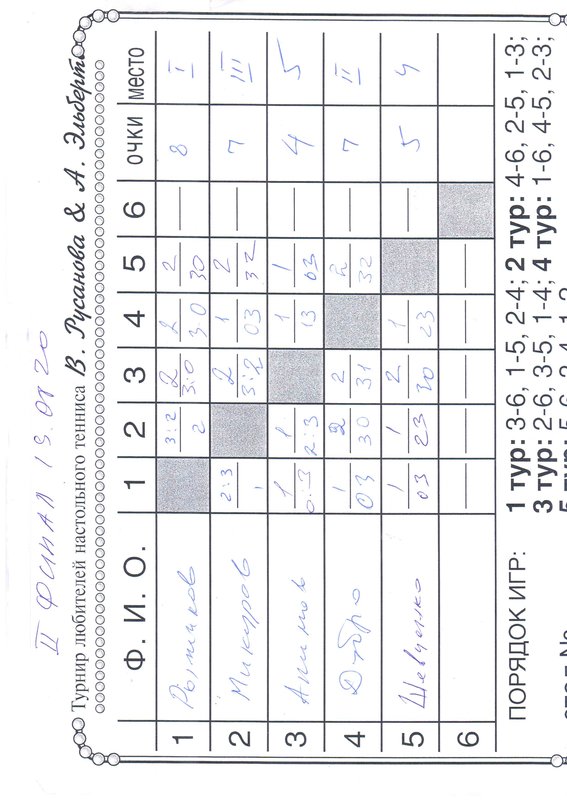 II ФИНАЛ 19.01.20
Турнир любителей настольного тенниса В. Русанова & А. Эльберт
Ф. И. О. 1 2 3 4 5 6 очки место
1 Рыжиков 3:2 2 2 3:0 2 30 2 30 — 8 I
2 Микуров 2:3 1 2 3:2 1 03 2 32 — 7 III
3 1 0:3 1 2:3 1 13 1 03 — 4 5
4 Дубро 1 03 2 30 2 31 2 32 — 7 II
5 Шевченко 1 03 1 23 2 30 1 23 — 5 4
6 — — — — —
ПОРЯДОК ИГР: 1 тур: 3-6, 1-5, 2-4; 2 тур: 4-6, 2-5, 1-3;
3 тур: 2-6, 3-5, 1-4; 4 тур: 1-6, 4-5, 2-3;